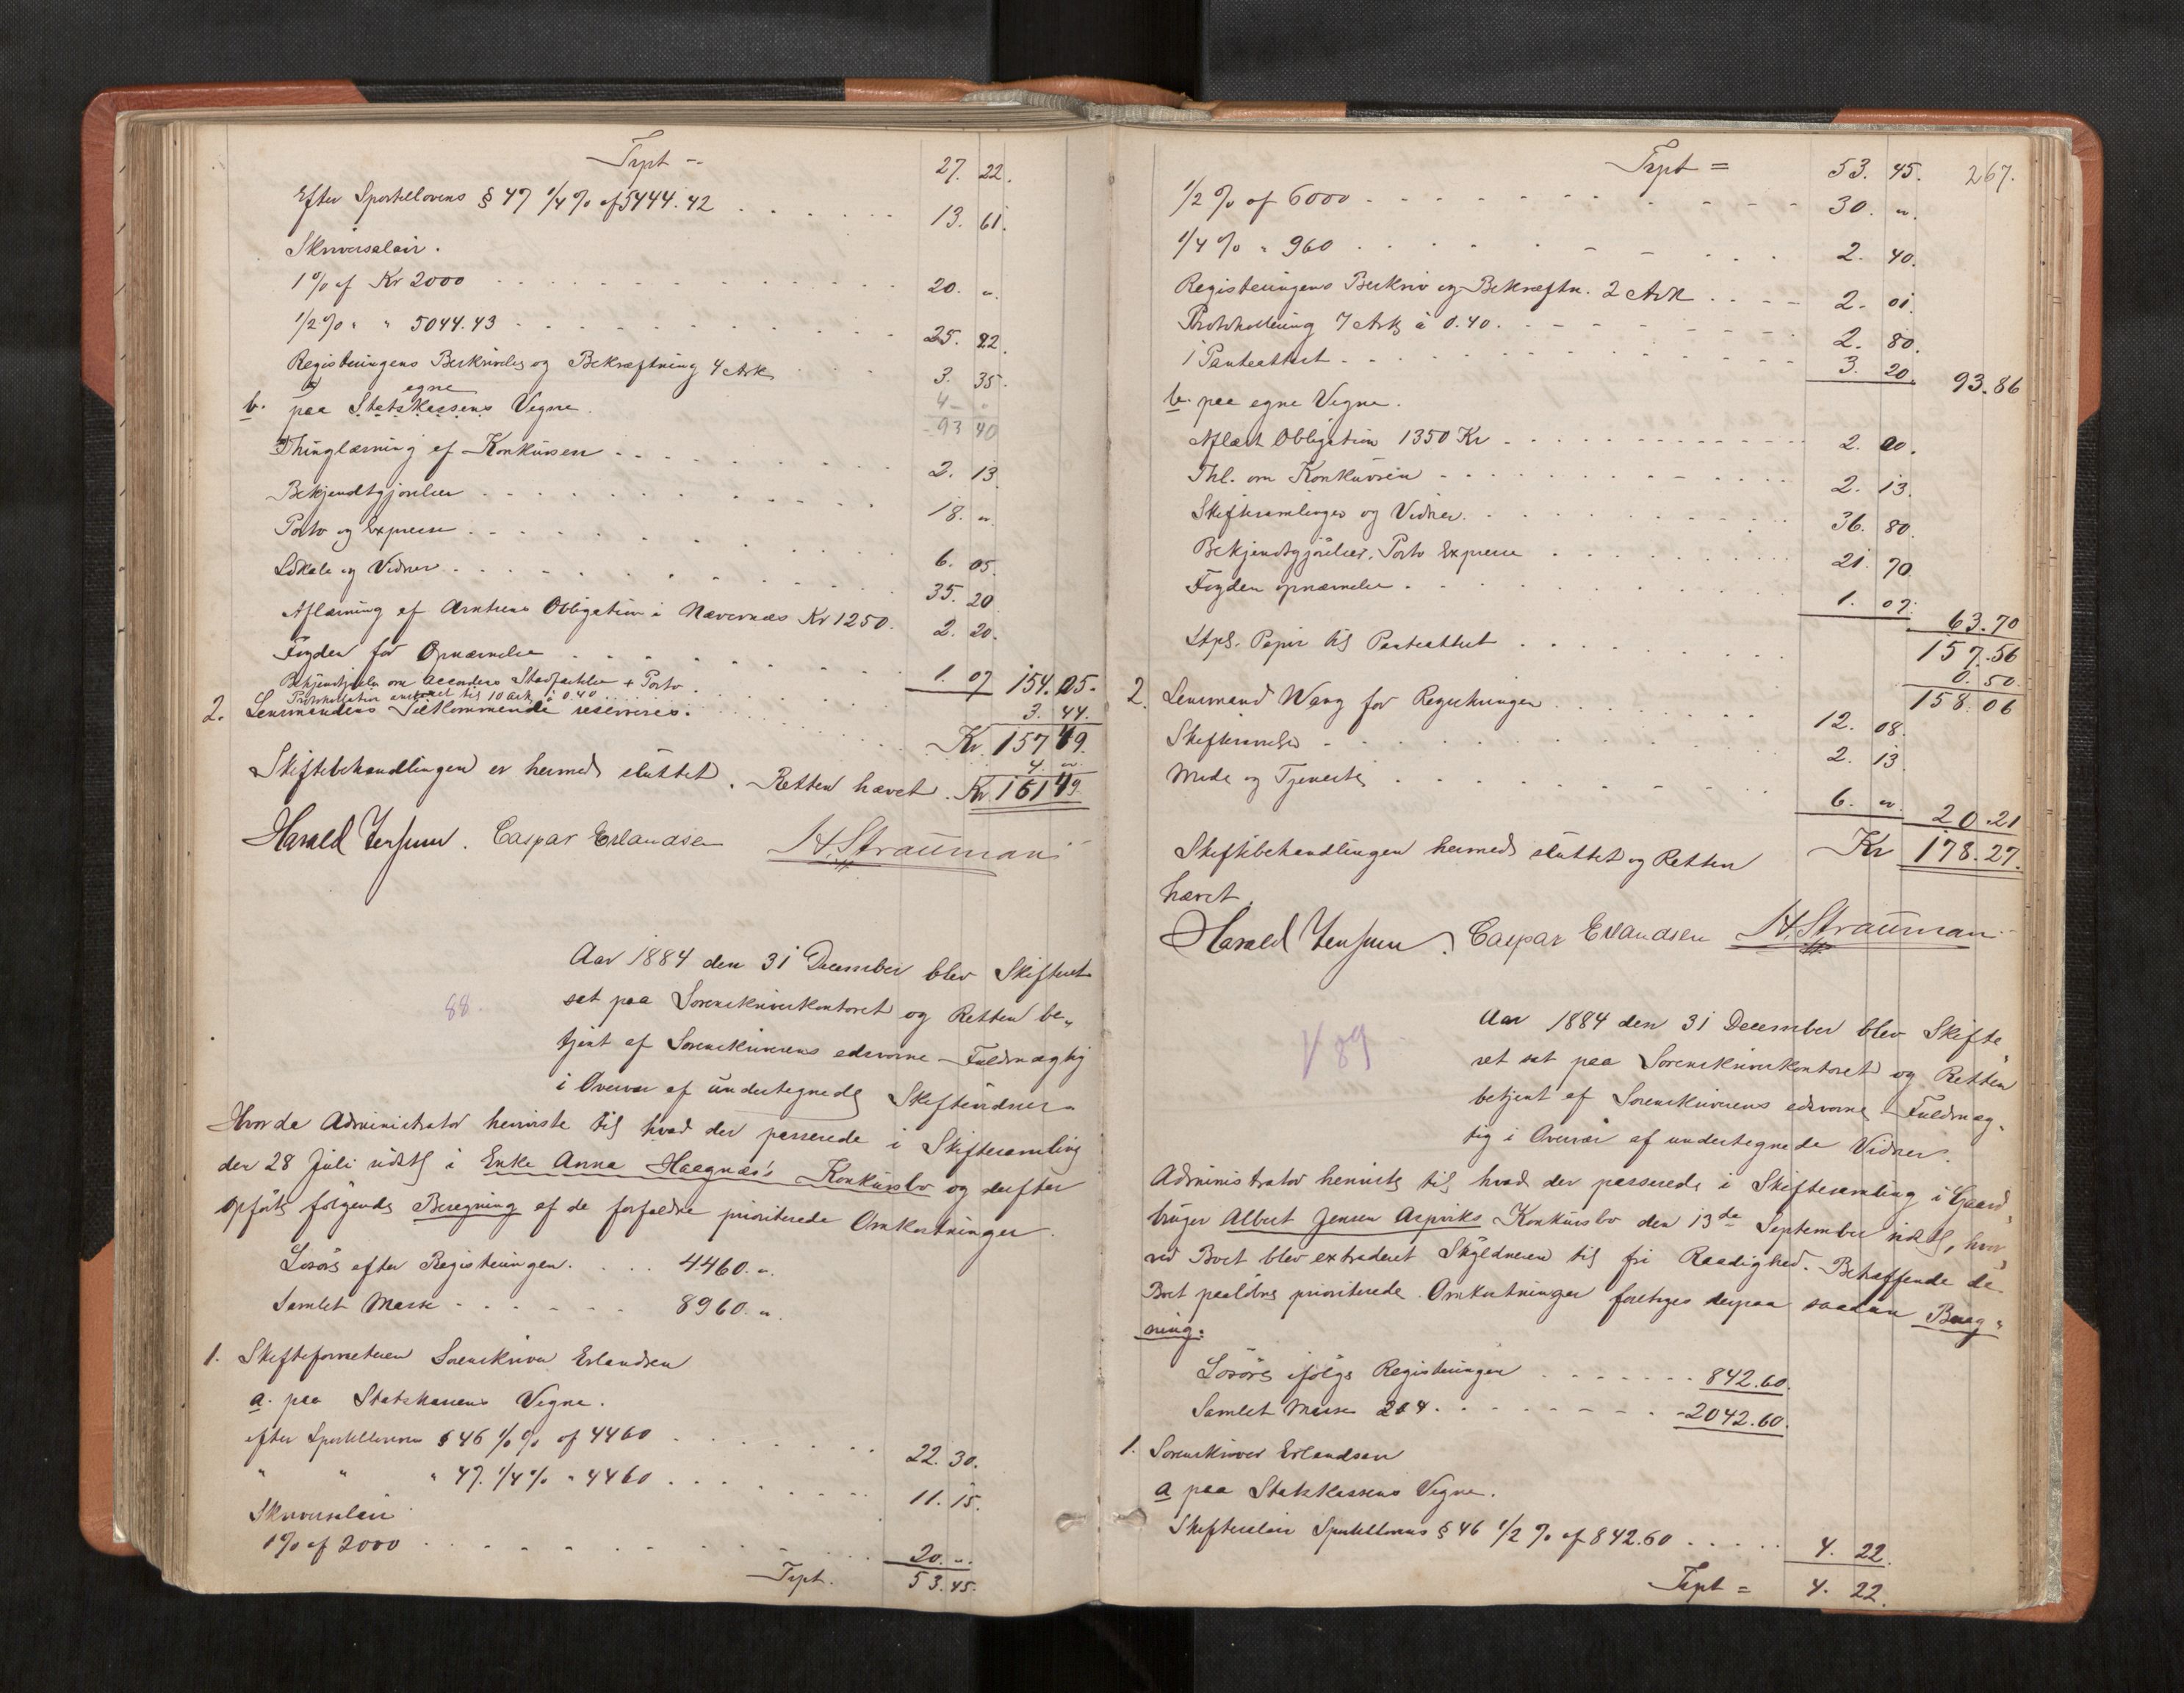 Trpt - 27. 22.
Efter Sportellovens § 47 1/4 % af 5444.42 13. 61.
Skriversalair.
1 % af Kr 2000 20. "
1/2 % " " 5044.43 25. 22.
Registreringens Beskrivelse og Bekræftning 4 Ark 3. 35.
4 "
93 40
b. paa Statskassens egne Vegne.
Thinglæsning af Konkursen 2. 13
Bekjendtgjørelser 18. "
Porto og Expresse 6. 05.
Lokale og Vidner 35. 20
Aflæsning af Arntsens Obligation i Nævernæs Kr 1250. 2. 20.
Fogden for Opnævnelse 1. 07 154.05.
Bekjendtgjørelse om Accordens Stadfæstelse + Porto 3. 44.
Protokollation anslaaet til 10 Ark à 0.40 Kr. 157 49.
2. Lensmandens Tilkommende reserveres. 4. "
Skiftebehandlingen er hermed sluttet. Retten hævet. Kr 161 49
Harald Jensen. Caspar Erlandsen H. Strauman
88.
Aar 1884 den 31 December blev Skifteret
sat paa Sorenskriverkontoret og Retten be„
tjent af Sorenskriverens edsvorne Fuldmægtig
i Overvær af undertegnede Skiftevidner.
Hvor da Administrator henviste til hvad der passerede i Skiftesamling
den 28 Juli sidstl i Enke Anna Haagnæs's Konkursbo og derefter
opførte følgende Beregning af de forfaldne prioriterede Omkostninger.
Løsøre efter Registreringen. 4460. "
Samlet Masse 8960. "
1. Skifteforvalteren Sorenskriver Erlandsen
a. paa Statskassens Vegne.
efter Sportelloven § 46 1/2 % af 4460 22. 30.
" " " 47. 1/4 % " 4460 11. 15.
Skriversalair
1 % af 2000 20. "
Trpt. 53. 45.
Trpt = 53. 45. 267.
1/2 % af 6000 30. "
1/4 % " 960 2. 40.
Registreringens Beskriv og Bekræftn. 2 Ark 2. 01.
Protokollering 7 Ark à 0.40. 2. 80.
1 Panteattest 3. 20. 93.86
b. paa egne Vegne.
Aflæst Obligation 1350 Kr 2. 00.
Thl. om Konkursen 2. 13.
Skiftesamlinger og Vidner. 36. 80.
Bekjendtgjørelser, Porto Expresse 21. 70
Fogden opnævnelse 1. 07. 63.70
157.56
Stpl. Papir til Panteattest 0.50.
158.06
2. Lensmand Wang for Registreringen 12. 08.
Skiftesamling 2. 13
Møde og Tjeneste 6. " 20.21
Skiftebehandlingen hermed sluttet og Retten Kr 178.27.
hævet.
Harald Jensen. Caspar Erlandsen H. Strauman
89
Aar 1884 den 31 December blev Skifte„
ret sat paa Sorenskriverkontoret og Retten
betjent af Sorenskriverens edsvorne Fuldmæg„
tig i Overvær af undertegnede Vidner.
Administrator henviste til hvad der passerede i Skiftesamling i Gaard„
bruger Albert Jensen Aspviks Konkursbo den 13de September sidstl, hvor
ved Boet blev extraderet Skyldneren til fri Raadighed. Betræffende de
Boet paaløbne prioriterede Omkostninger foretoges derpaa saadan Bereg„
ning:
Løsøre ifølge Registreringen 842.60.
Samlet Masse 2042.60.
1. Sorenskriver Erlandsen
a paa Statskassens Vegne.
Skiftesalair Sportellovens § 46 1/2 % af 842.60 4. 22.
Trpt = 4. 22.